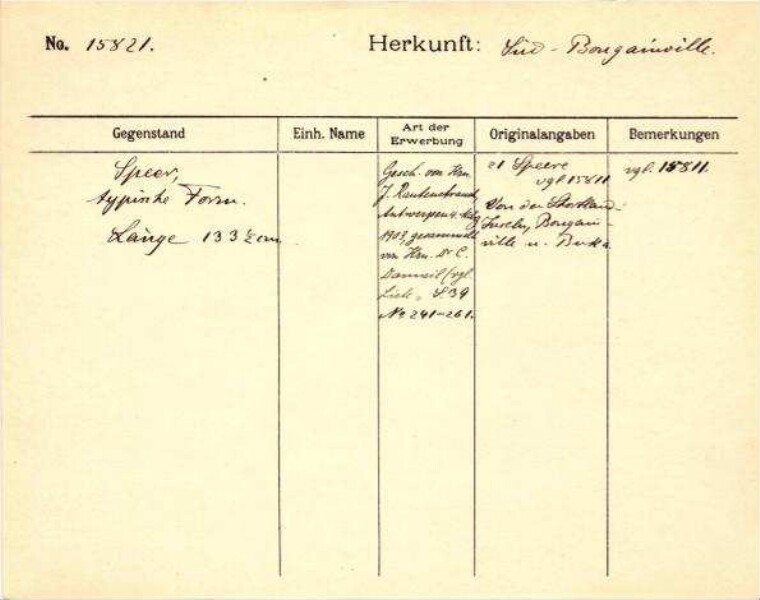 No. 15821.
Herkunft: Süd - Bougainville.
Gegenstand
Einh. Name
Art der Erwerbung
Originalangaben
Bemerkungen
Speer,
typische Form.
Länge 133 ½ cm
Gesch. von Hrn.
J. Rautenstrauch
Antwerpen
1903, gesammelt
von Hrn. Dr C.
(vgl.
Liste S. 39
Nr. 241-261.
21 Speere
vgl. 15811
Von den Shortland-
Inseln, Bougain-
ville u. Buka
vgl. 15811.